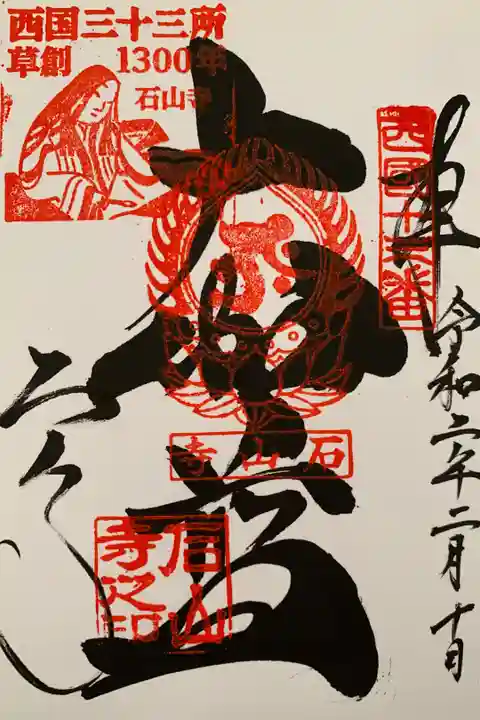 西国三十三所
草創 1300年
石山寺
西国十三番
令和二年二月十日
大伽藍
石山寺
石山寺之印